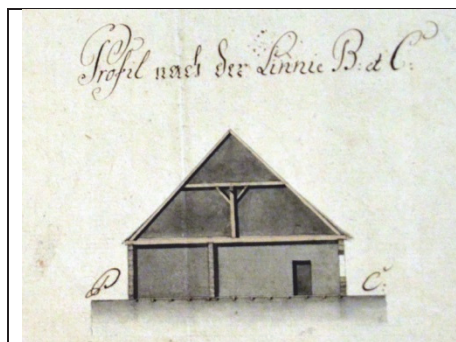 Profil nach der Linnie B: et C:
B C: